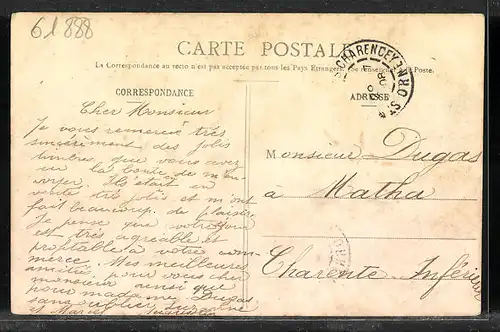 61888
CARTE POSTALE
La Correspondance au recto n'est pas acceptée par tous les Pays Etrangers. Se renseigner à la Poste.
CORRESPONDANCE
ADRESSE
Cher Monsieur
Je vous remercie très
sincèrement des jolis
timbres que vous avez
eu la bonté de m'en
voyer. Ils étaient en
vérité très jolis et m'ont
fait beaucoup de plaisir.
Je pense que votre
est très agréable et
profitable à votre com
merce. Mes meilleures
amitiés pour vous cher
monsieur ainsi que
pour madame Dugas
sans oublier
et Marcel
Monsieur Dugas
à Matha
Charente Inférieure